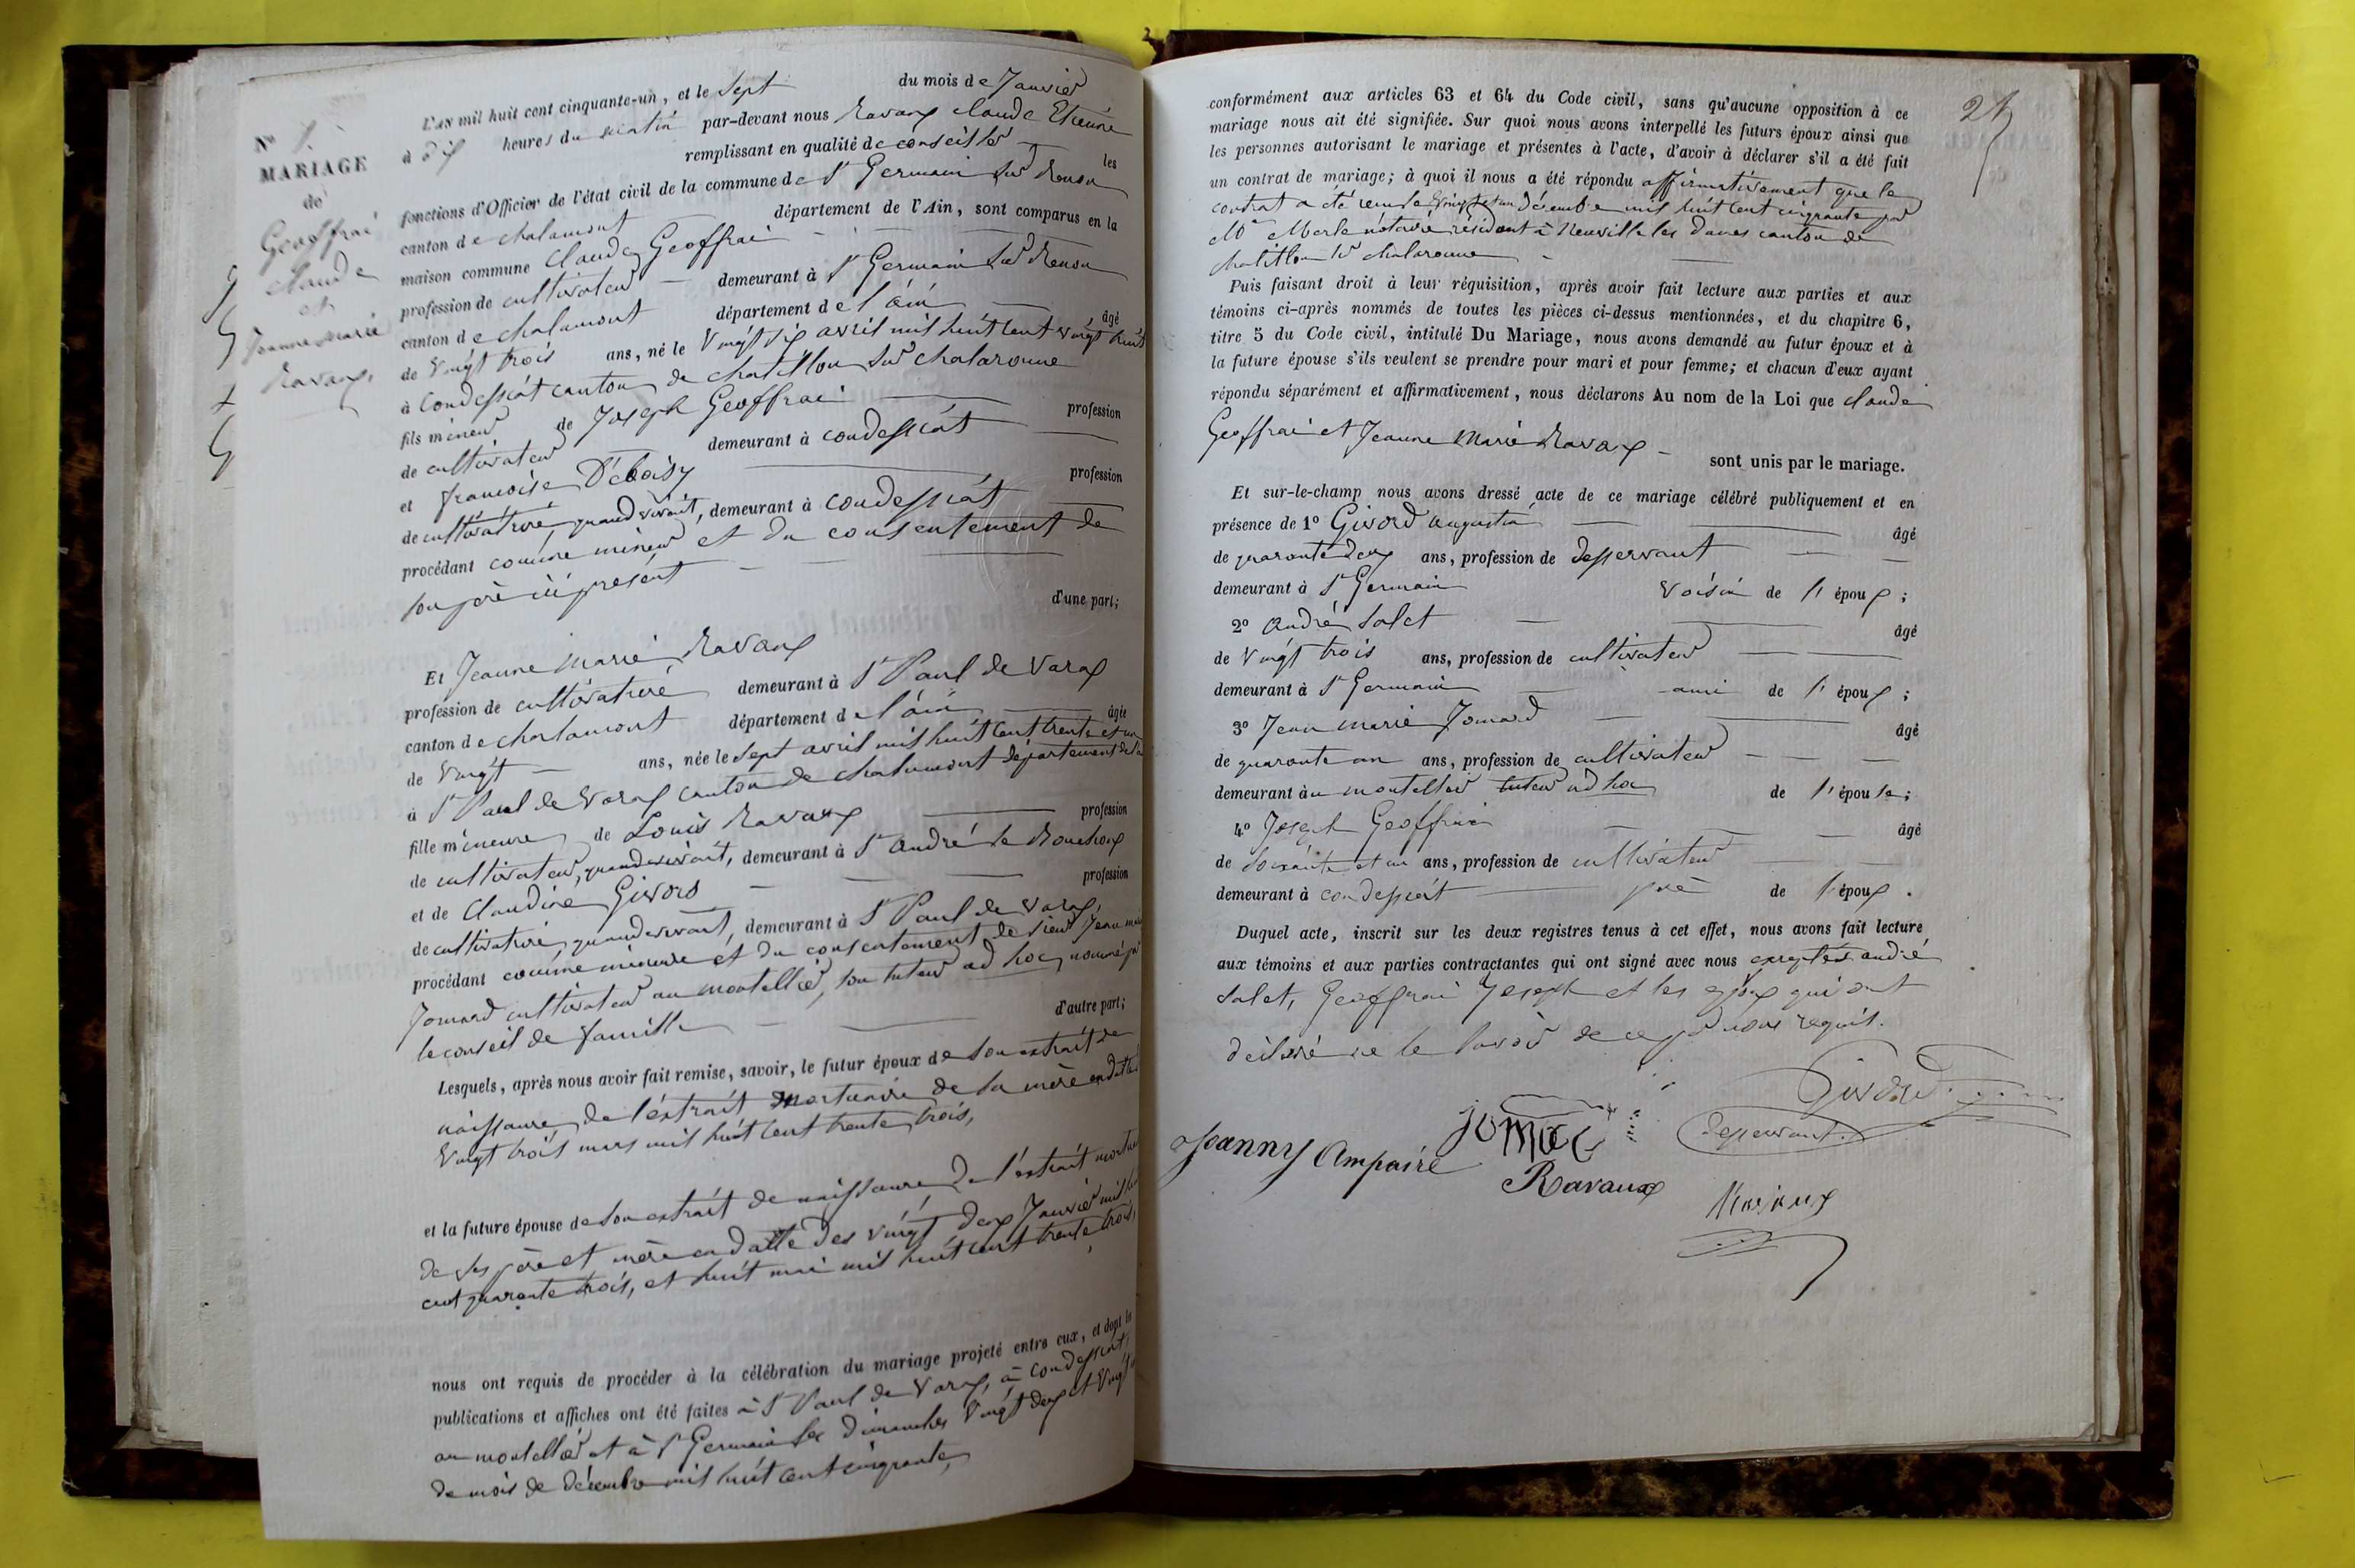 N° 1.
MARIAGE
de
Geoffrai
claude
et
Jeanne Marie
Ravaux.
L'AN mil huit cent cinquante-un, et le Sept du mois de Janvier
à dix heures du matin par-devant nous Ravaux claude Etienne
remplissant en qualité de conseiller les
fonctions d'Officier de l'état civil de la commune de St Germain sur Renon
canton de chalamont département de l'Ain, sont comparus en la
maison commune Claude Geoffrai
profession de cultivateur demeurant à St Germain sur Renon
canton de chalamont département de l'ain âgé
de Vingt trois ans, né le Vingt six avril mil huit cent vingt huit
à Condessiat canton de chatillon sur chalaronne
fils mineur de Joseph Geoffrai profession
de cultivateur demeurant à condessiat
et francoise Déboisy profession
de cultivatrice, quand vivait, demeurant à condessiat
procédant comme mineur et du consentement de
son père ici présent
d'une part;
Et Jeanne Marie Ravaux
profession de cultivatrice demeurant à St Paul de Varax
canton de chalamont département de l'ain âgée
de Vingt ans, née le sept avril mil huit cent trente et un
à St Paul de Varax canton de chalamont département de l'a
fille mineure de Louis Ravaux profession
de cultivateur, quand vivait, demeurant à St andré le Bouchoux
et de Claudine Givord profession
de cultivatrice, quand vivait, demeurant à St Paul de Varax,
procédant comme mineure et du consentement de sieur Jean marie
Jomard cultivateur au montellier, son tuteur ad hoc, nommé par
le conseil de famille d'autre part;
Lesquels, après nous avoir fait remise, savoir, le futur époux de son extrait de
naissance, de l'extrait mortuaire de sa mère en datte du
Vingt trois mars mil huit cent trente trois,
et la future épouse de son extrait de naissance de l'extrait mortu
de ses père et mère en datte des vingt deux Janvier mil hui
cent quarante trois, et huit mai mil huit cent trente trois,
nous ont requis de procéder à la célébration du mariage projeté entre eux, et dont les
publications et affiches ont été faites à St Paul de Varax, à condessiat,
au montellier et à St Germain les dimanches Vingt deux et Vingt
du mois de décembre mil huit cent cinquante,
conformément aux articles 63 et 64 du Code civil, sans qu'aucune opposition à ce
mariage nous ait été signifiée. Sur quoi nous avons interpellé les futurs époux ainsi que
les personnes autorisant le mariage et présentes à l'acte, d'avoir à déclarer s'il a été fait
un contrat de mariage; à quoi il nous a été répondu affirmativement que le
contrat a été rendu Vingt et un décembre mil huit cent cinquante par
Me Merle notaire résidant à Neuville les dames canton de
chatillon sr chalaronne
Puis faisant droit à leur réquisition, après avoir fait lecture aux parties et aux
témoins ci-après nommés de toutes les pièces ci-dessus mentionnées, et du chapitre 6,
titre 5 du Code civil, intitulé Du Mariage, nous avons demandé au futur époux et à
la future épouse s'ils veulent se prendre pour mari et pour femme; et chacun d'eux ayant
répondu séparément et affirmativement, nous déclarons Au nom de la Loi que claude
Geoffrai et Jeanne Marie Ravaux
sont unis par le mariage.
Et sur-le-champ nous avons dressé acte de ce mariage célébré publiquement et en
présence de 1° Givord augustin âgé
de quarante deux ans, profession de desservant
demeurant à St Germain Voisin de l'époux;
2° andré Salet âgé
de Vingt trois ans, profession de cultivateur
demeurant à St Germain ami de l'époux;
3° Jean marie Jomard âgé
de quarante un ans, profession de cultivateur
demeurant au montellier tuteur ad hoc de l'épouse;
4° Joseph Geoffrai âgé
de soixante et un ans, profession de cultivateur
demeurant à condessiat père de l'époux.
Duquel acte, inscrit sur les deux registres tenus à cet effet, nous avons fait lecture
aux témoins et aux parties contractantes qui ont signé avec nous exceptés andré
Salet, Geoffrai Joseph et les époux qui ont
déclaré ne le savoir de ce par nous requis.
Givord
desservant.
Jeanny Ampaire
Ravaux